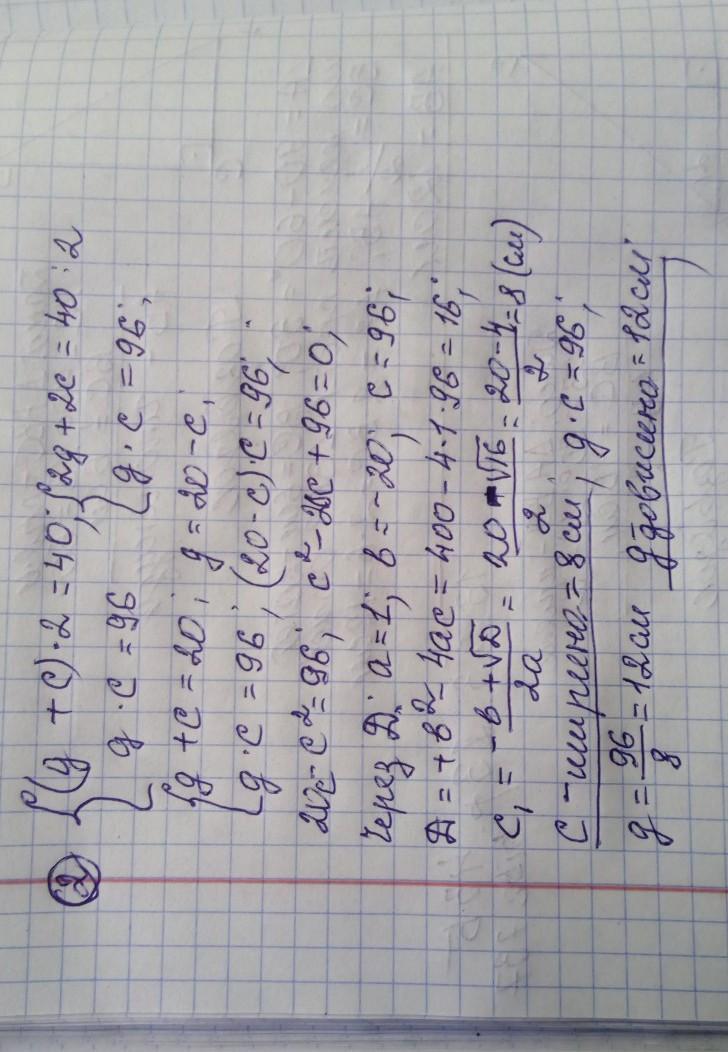 ② { (g + c)·2 = 40; { 2g + 2c = 40 : 2
g · c = 96 { g · c = 96;
{ g + c = 20; g = 20 - c;
{ g · c = 96; (20 - c)·c = 96;
20c - c² = 96; c² - 20c + 96 = 0;
Через Д. a = 1; в = -20; c = 96;
Д = + в² - 4ac = 400 - 4·1·96 = 16;
c₁ = -в + √Д / 2a = 20 - √16 / 2 = 20 - 4 / 2 = 8 (см)
c - ширина = 8 см; g · c = 96;
g = 96/8 = 12 см g - довжина = 12 см;